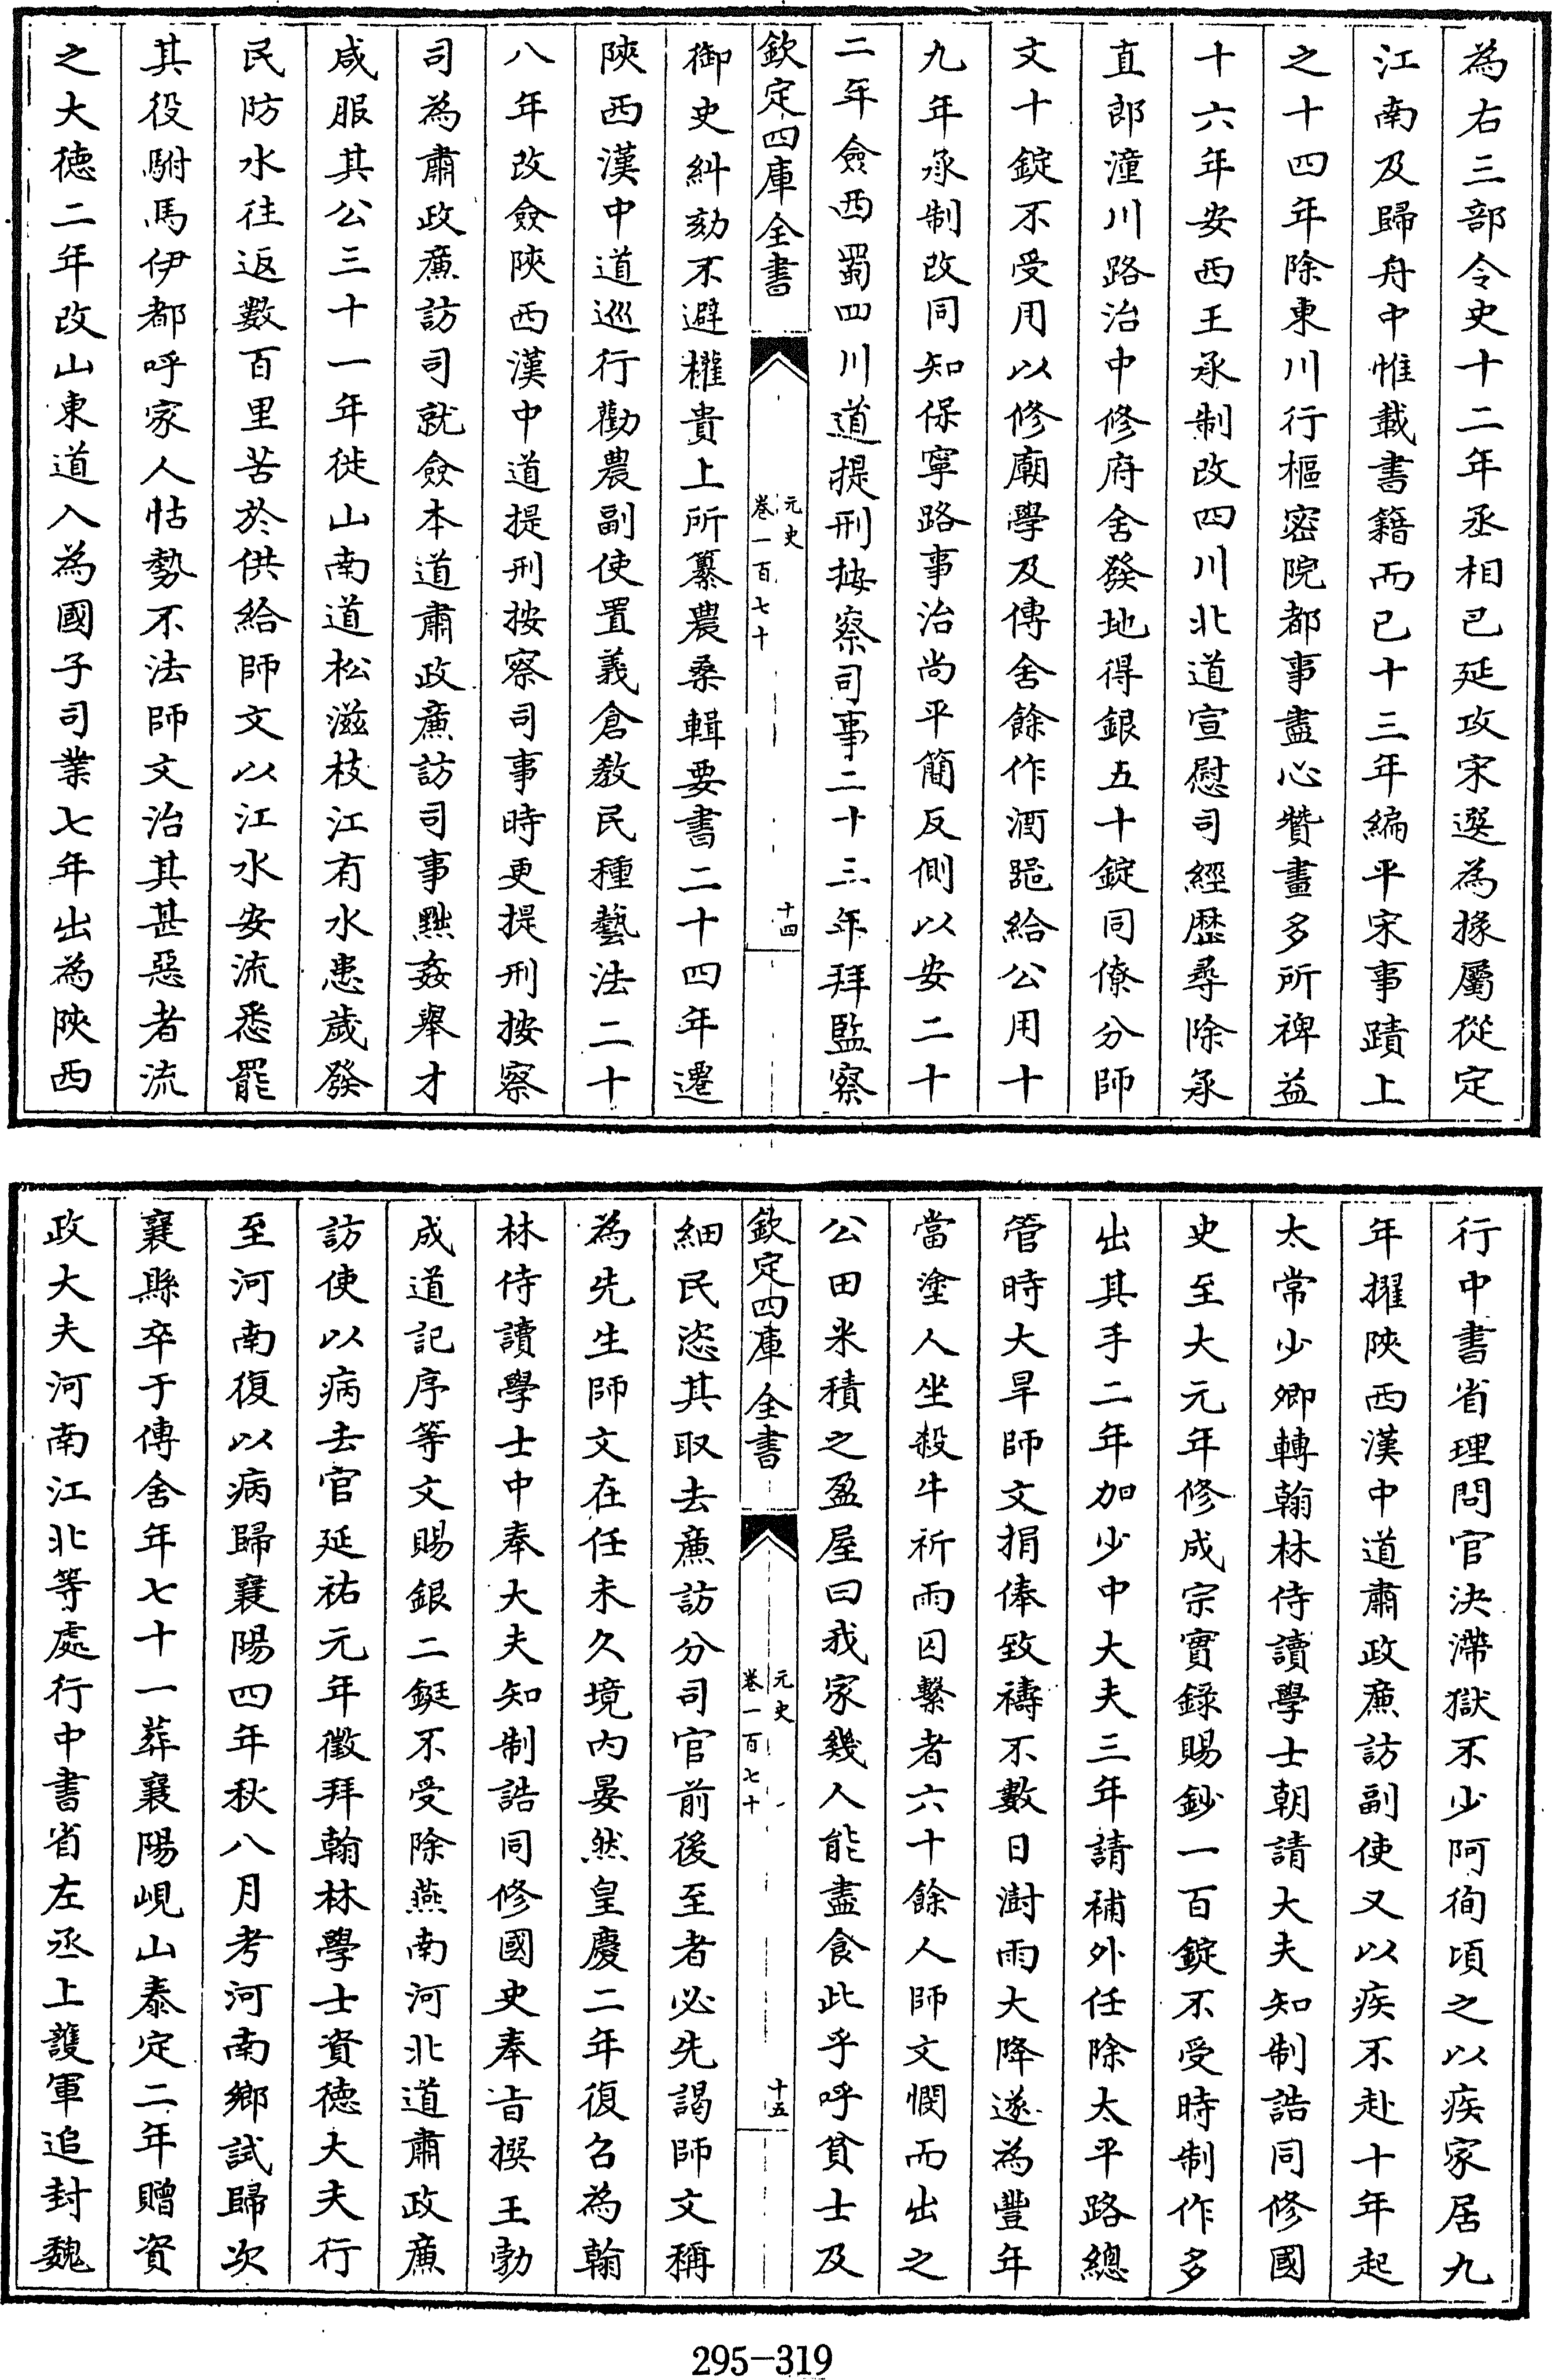 為右三部令史十二年丞相已延攻宋選為掾屬從定
江南及歸舟中惟載書籍而已十三年編平宋事蹟上
之十四年除東川行樞密院都事盡心贊畫多所裨益
十六年安西王承制改四川北道宣慰司經歷尋除承
直郎潼川路治中修府舍發地得銀五十錠同僚分師
文十錠不受用以修廟學及傳舍餘作酒𨠑給公用十
九年承制改同知保寧路事治尚平簡反側以安二十
二年僉西蜀四川道提刑按察司事二十三年拜監察
欽定四庫全書
元史
卷一百七十
十四
御史糾劾不避權貴上所纂農桑輯要書二十四年遷
陜西漢中道巡行勸農副使置義倉教民種藝法二十
八年改僉陜西漢中道提刑按察司事時更提刑按察
司為肅政廉訪司就僉本道肅政廉訪司事黜姦舉才
咸服其公三十一年徙山南道松滋枝江有水患歲發
民防水往返數百里苦於供給師文以江水安流悉罷
其役駙馬伊都呼家人怙勢不法師文治其甚惡者流
之大徳二年改山東道入為國子司業七年出為陜西
行中書省理問官決滯獄不少阿徇頃之以疾家居九
年擢陜西漢中道肅政廉訪副使又以疾不赴十年起
太常少卿轉翰林侍讀學士朝請大夫知制誥同修國
史至大元年修成宗實錄賜鈔一百錠不受時制作多
出其手二年加少中大夫三年請補外任除太平路總
管時大旱師文捐俸致禱不數日澍雨大降遂為豐年
當塗人坐殺牛祈雨囚繫者六十餘人師文憫而出之
公田米積之盈屋曰我家幾人能盡食此乎呼貧士及
欽定四庫全書
元史
卷一百七十
十五
細民恣其取去廉訪分司官前後至者必先謁師文稱
為先生師文在任未久境內晏然皇慶二年復召為翰
林侍讀學士中奉大夫知制誥同修國史奉旨撰王勃
成道記序等文賜銀二鋌不受除燕南河北道肅政廉
訪使以病去官延祐元年徵拜翰林學士資徳大夫行
至河南復以病歸襄陽四年秋八月考河南鄉試歸次
襄縣卒于傳舍年七十一葬襄陽峴山泰定二年贈資
政大夫河南江北等處行中書省左丞上護軍追封魏
295-319